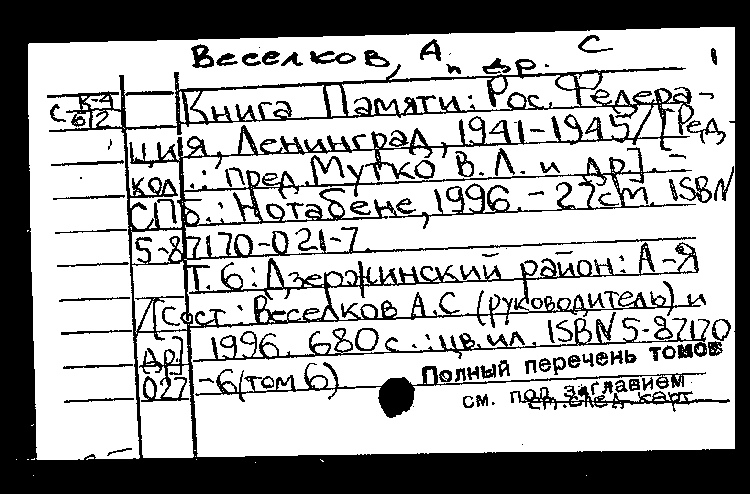 Веселков, А. и др. С
1
К-4
С-612
Книга Памяти: Рос. Федера-
ция, Ленинград, 1941-1945/[Ред.
кол.: пред. Мутко В.Л. и др]. -
СПб.: Нотабене, 1996. - 27см. ISBN
5-87170-021-7.
Т. 6: Дзержинский район: А-Я
/[Сост: Веселков А.С (руководитель) и
др] 1996. 680 с.: цв. ил. ISBN 5-87170
027-6 (том 6)
Полный перечень томов
см. под заглавием
см. след. карт